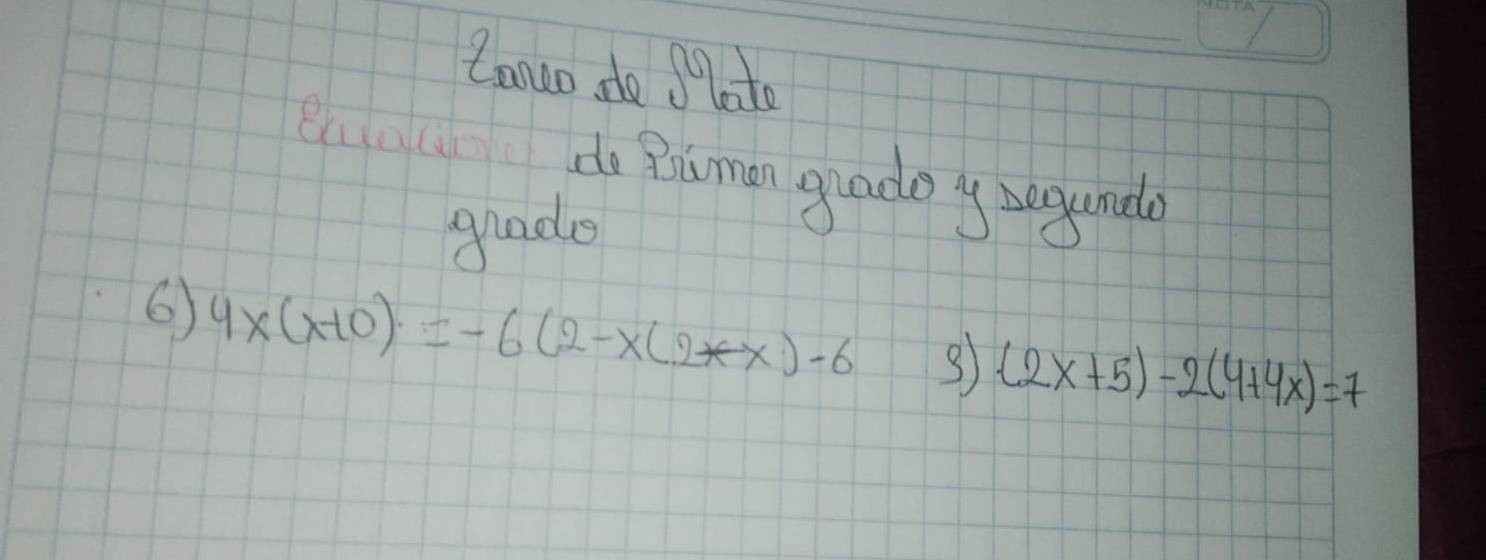 NOTA
Tarea de Mate
Ecuaciones de Primer grado y segundo
grado
6) 4x(x+0) = -6(2-x(2-x)-6
9) (2x+5)-2(4+4x)=7